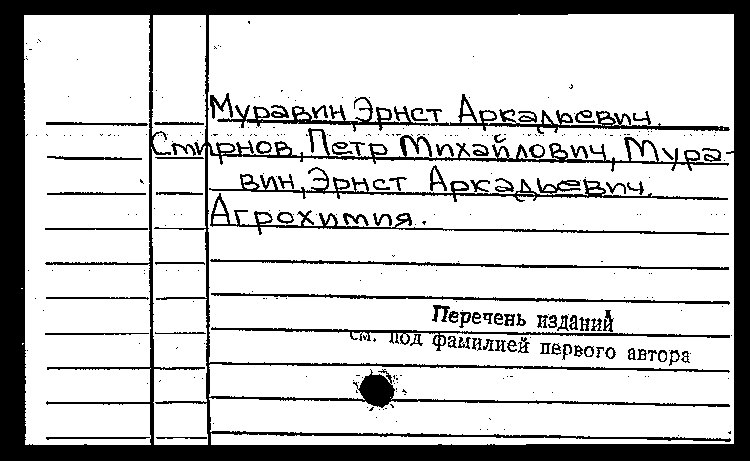 Муравин, Эрнст Аркадьевич.
Смирнов, Петр Михайлович, Мура-
вин, Эрнст Аркадьевич.
Агрохимия.
Перечень изданий
см. под фамилией первого автора